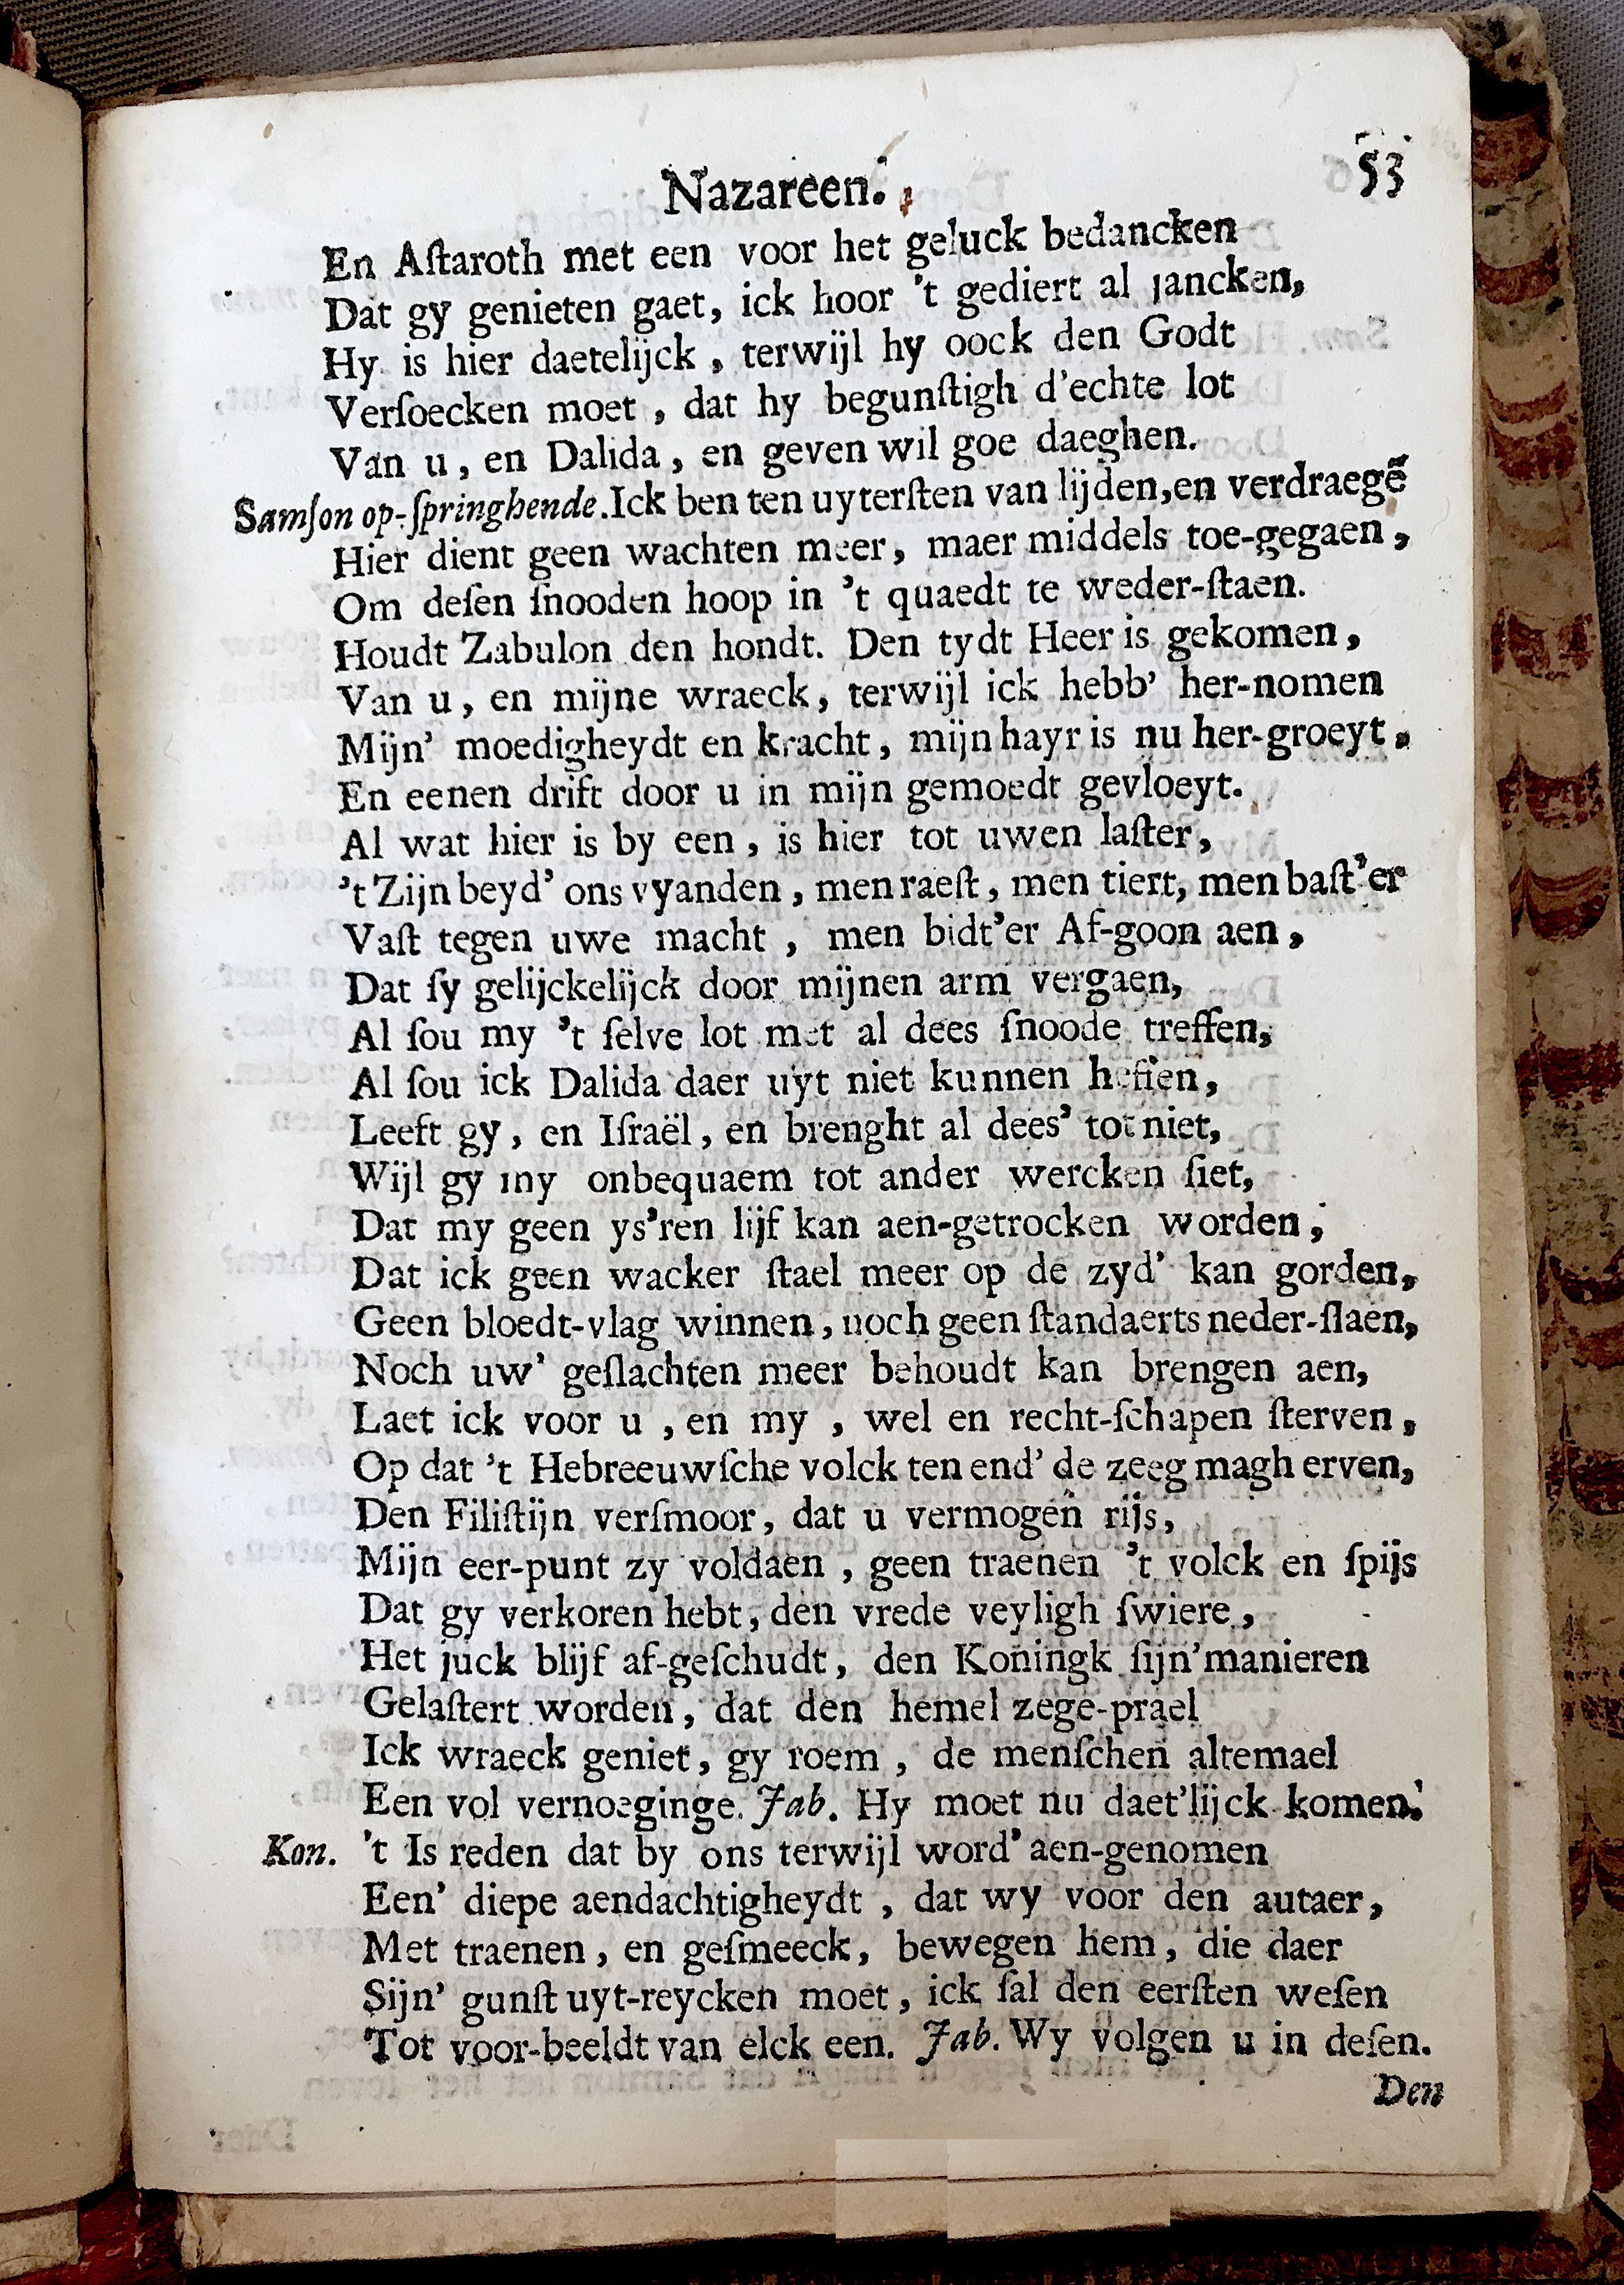 Nazareen. 53
En Aſtaroth met een voor het geluck bedancken
Dat gy genieten gaet, ick hoor 't gediert al jancken,
Hy is hier daetelijck, terwijl hy oock den Godt
Verſoecken moet, dat hy begunſtigh d'echte lot
Van u, en Dalida, en geven wil goe daeghen.
Samſon op-ſpringhende. Ick ben ten uyterſten van lijden, en verdraegē
Hier dient geen wachten meer, maer middels toe-gegaen,
Om deſen ſnooden hoop in 't quaedt te weder-ſtaen.
Houdt Zabulon den hondt. Den tydt Heer is gekomen,
Van u, en mijne wraeck, terwijl ick hebb' her-nomen
Mijn' moedigheydt en kracht, mijn hayr is nu her-groeyt.
En eenen drift door u in mijn gemoedt gevloeyt.
Al wat hier is by een, is hier tot uwen laſter,
't Zijn beyd' ons vyanden, men raeſt, men tiert, men baſt'er
Vaſt tegen uwe macht, men bidt'er Af-goon aen,
Dat ſy gelijckelijck door mijnen arm vergaen,
Al ſou my 't ſelve lot met al dees ſnoode treffen,
Al ſou ick Dalida daer uyt niet kunnen heffen,
Leeft gy, en Iſraël, en brenght al dees' tot niet,
Wijl gy my onbequaem tot ander wercken ſiet,
Dat my geen ys'ren lijf kan aen-getrocken worden,
Dat ick geen wacker ſtael meer op de zyd' kan gorden,
Geen bloedt-vlag winnen, noch geen ſtandaerts neder-ſlaen,
Noch uw' geſlachten meer behoudt kan brengen aen,
Laet ick voor u, en my, wel en recht-ſchapen ſterven,
Op dat 't Hebreeuwſche volck ten end' de zeeg magh erven,
Den Filiſtijn verſmoor, dat u vermogen rijs,
Mijn eer-punt zy voldaen, geen traenen 't volck en ſpijs
Dat gy verkoren hebt, den vrede veyligh ſwiere,
Het juck blijf af-geſchudt, den Koningk ſijn' manieren
Gelaſtert worden, dat den hemel zege-prael
Ick wraeck geniet, gy roem, de menſchen altemael
Een vol vernoeginge. Jab. Hy moet nu daet'lijck komen.
Kon. 't Is reden dat by ons terwijl word' aen-genomen
Een' diepe aendachtigheydt, dat wy voor den autaer,
Met traenen, en geſmeeck, bewegen hem, die daer
Sijn' gunſt uyt-reycken moet, ick ſal den eerſten weſen
Tot voor-beeldt van elck een. Jab. Wy volgen u in deſen.
Den